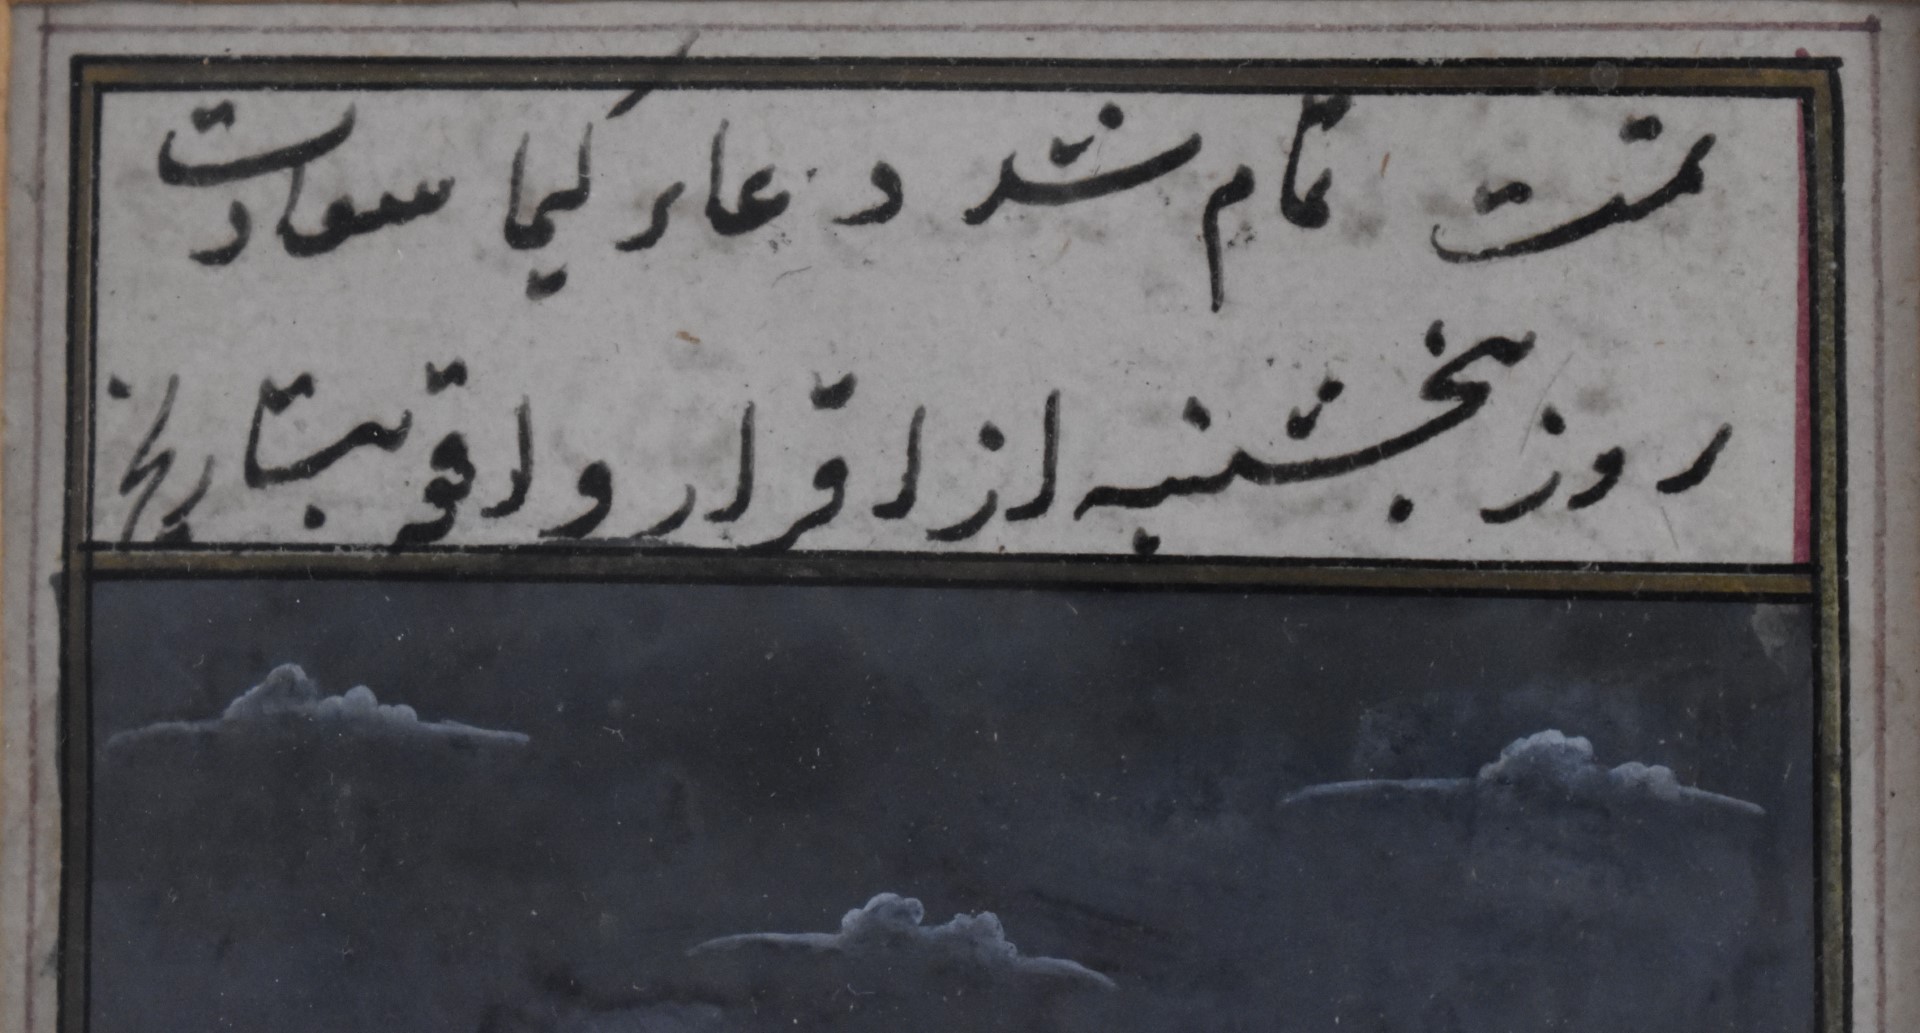 تمت تمام شد د عاء کیما سعادت
روز پنجشنبه از اقرار واقو بتاریخ